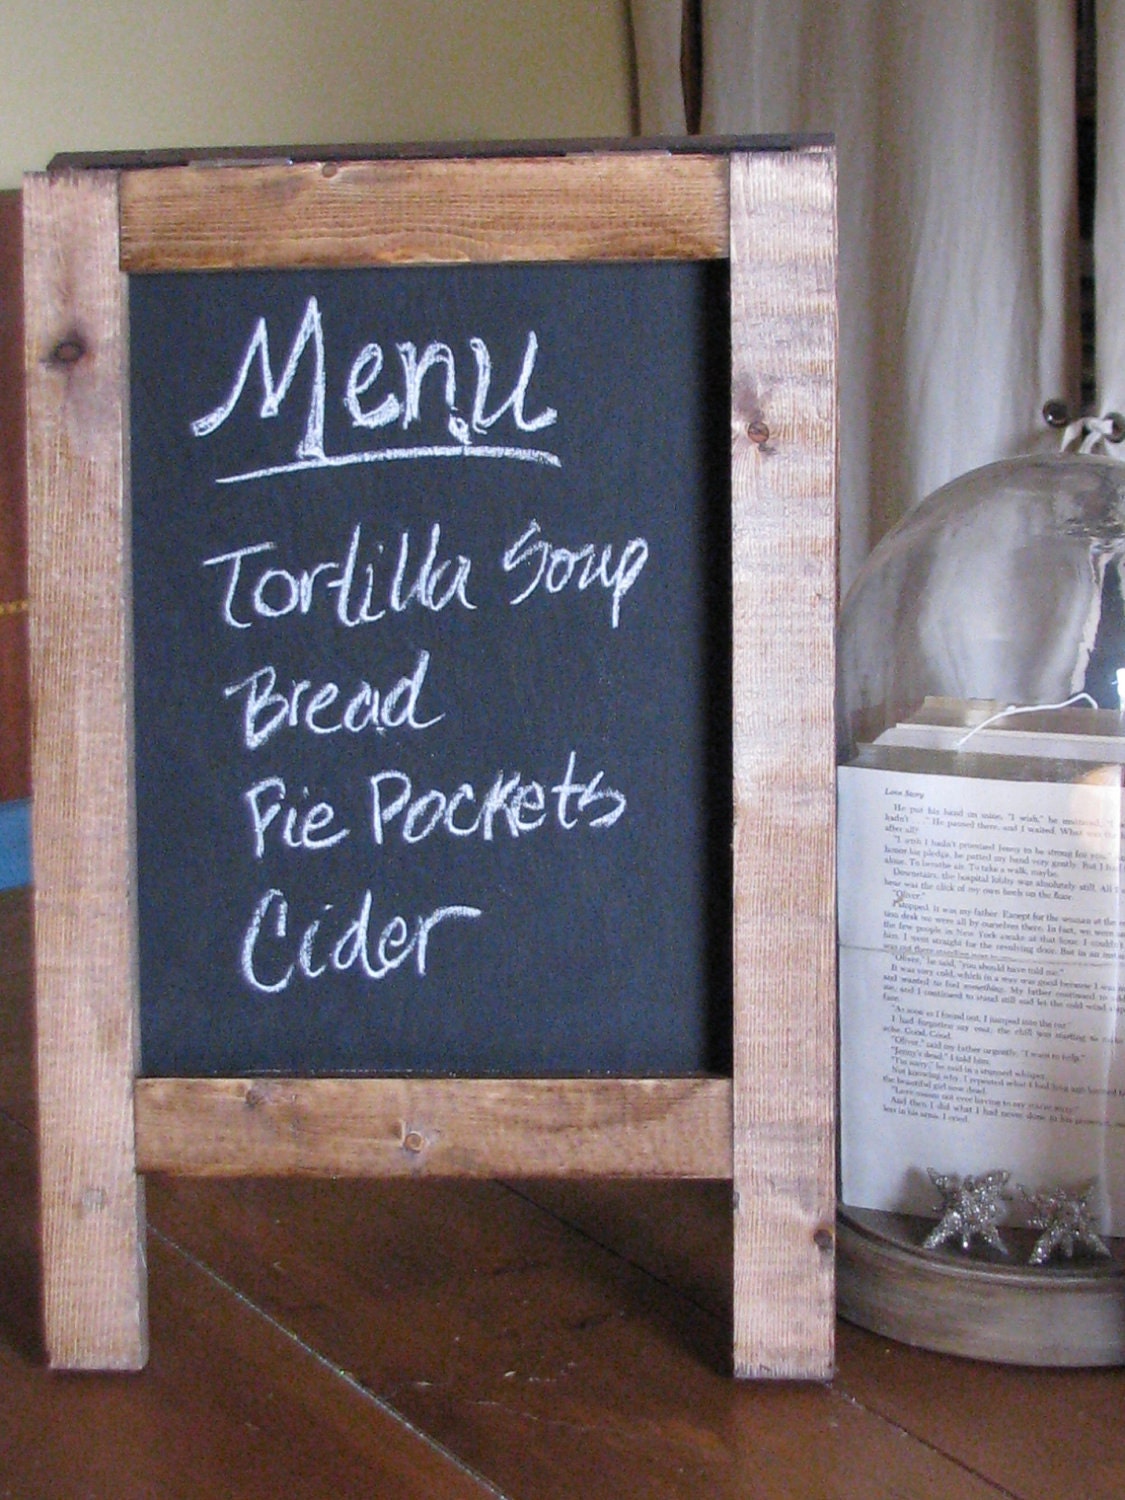 Menu
Tortilla Soup
Bread
Pie Pockets
Cider
Love Story
He put his hand on mine. "I wish," he
hadn't . . ." He paused there, and I waited. What
after all?
"I wish I hadn't promised Jenny to be strong for you,"
honor his pledge, he patted my hand very gently. But I
alone. To breathe air. To take a walk, maybe.
Downstairs, the hospital lobby was absolutely still. All
hear was the click of my own heels on the floor.
"Oliver."
I stopped. It was my father. Except for the woman at the
desk we were all by ourselves there. In fact, we were
the few people in New York awake at that hour. I couldn't
him. I went straight for the revolving door. But in an
was out there standing next to me.
"Oliver," he said, "you should have told me."
It was very cold, which in a way was good because I
and wanted to feel something. My father continued to
me, and I continued to stand still and let the cold wind
face.
"As soon as I found out, I jumped into the car."
I had forgotten my coat; the chill was starting to
ache. Good. Good.
"Oliver," said my father urgently, "I want to help."
"Jenny's dead," I told him.
"I'm sorry," he said in a stunned whisper.
Not knowing why, I repeated what I had long ago learned
the beautiful girl now dead.
"Love means not ever having to say you're sorry."
And then I did what I had never done in his presence,
less in his arms. I cried.